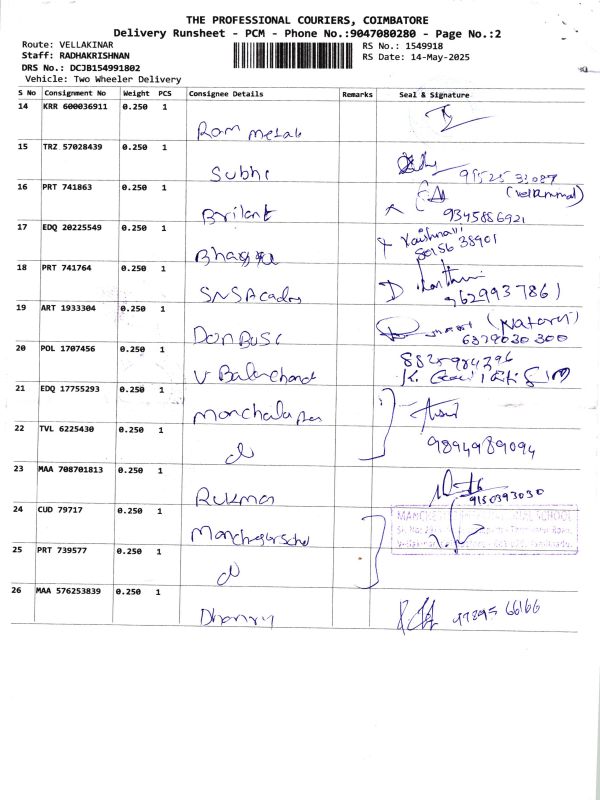 THE PROFESSIONAL COURIERS, COIMBATORE
Delivery Runsheet - PCM - Phone No.:9047080280 - Page No.:2
Route: VELLAKINAR
RS No.: 1549918
Staff: RADHAKRISHNAN
RS Date: 14-May-2025
DRS No.: DCJB154991802
Vehicle: Two Wheeler Delivery
S No Consignment No Weight PCS Consignee Details Remarks Seal & Signature
14 KRR 600036911 0.250 1
Ram metals
15 TRZ 57028439 0.250 1
Subhi
16 PRT 741863 0.250 1
Brilant
9345886921
17 EDQ 20225549 0.250 1
Vaishnavi
38901
18 PRT 741764 0.250 1
SNS Acadmy
9629937861
19 ART 1933304 0.250 1
Don Bosc
6379030300
20 POL 1707456 0.250 1
V Balachand
21 EDQ 17755293 0.250 1
22 TVL 6225430 0.250 1
9894989094
23 MAA 708701813 0.250 1
Rukman
9150393030
24 CUD 79717 0.250 1
25 PRT 739577 0.250 1
26 MAA 576253839 0.250 1
66166